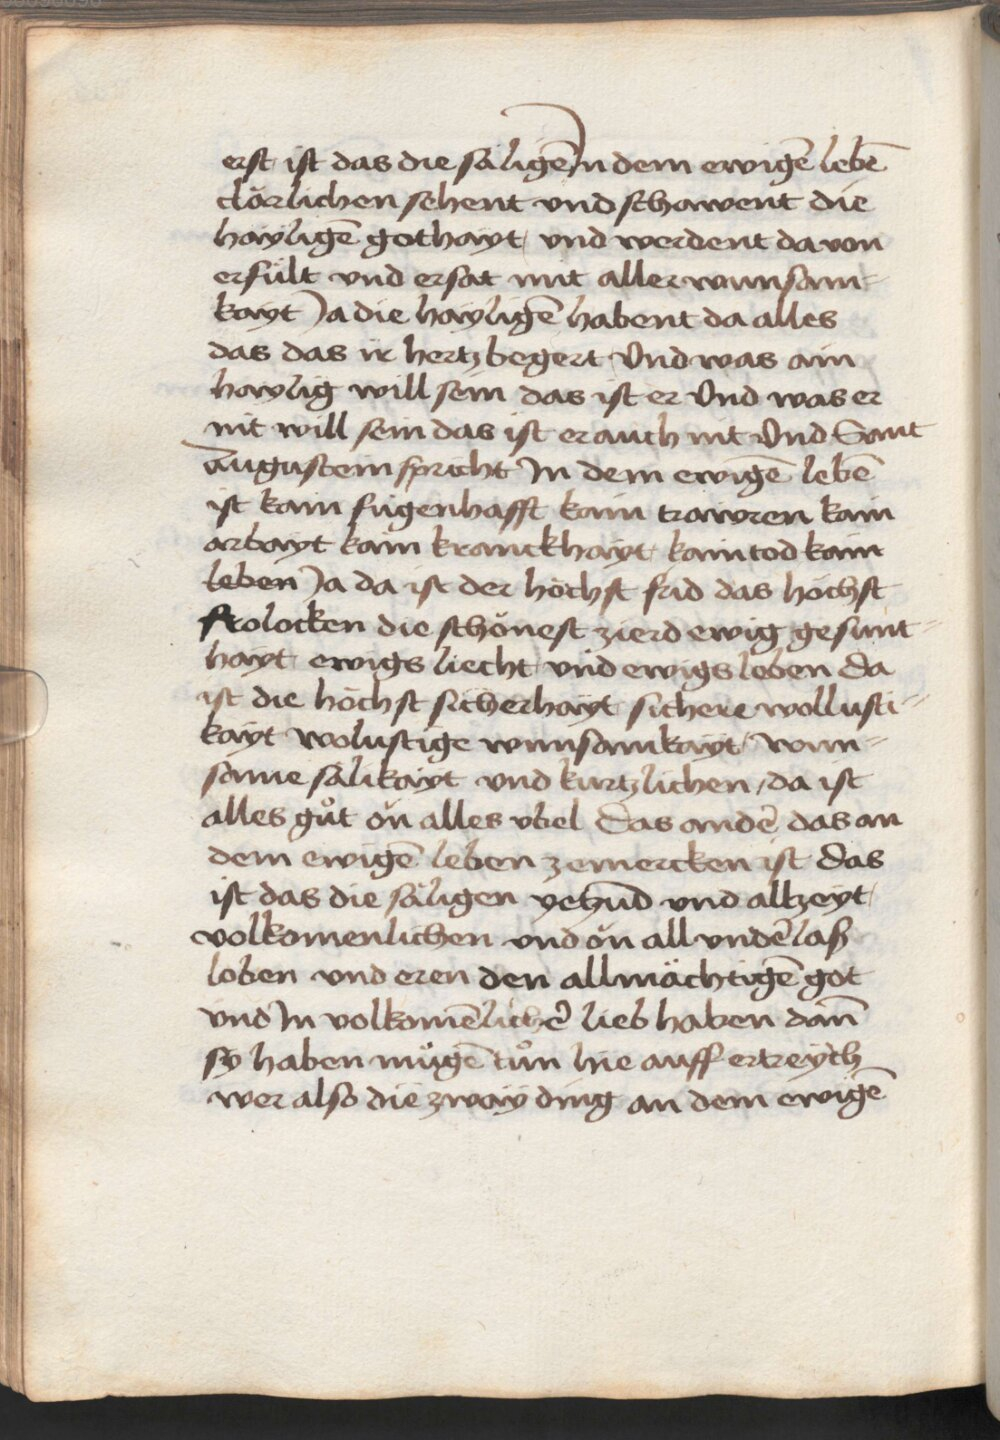 erst ist das die säligē In dem ewigē lebē
clärlichen sehent vnd schawent die
hayligē gothayt vnd werdent da von
erfült vnd ersat mit aller wunsam-
kayt Ja die hayligē habent da alles
das das ir hertz begert Vnd was ain
haylig will sein das ist er Vnd was er
nit will sein das ist er auch nit Vnd Sant
Augustein spricht In dem ewigē lebē
ist kain sügenhafft kain trawren kain
arbayt kain kranckhayt kain tod kain
leben Ja da ist der höchst frid das höchst
frolocken die schönest zierd ewig gesunt-
hayt ewigs liecht vnd ewigs leben Da
ist die höchst sicherhayt sichere wollusti-
kayt wolustige wunsamkayt wun-
same sälikayt vnd kurtzlichen da ist
alles gůt on alles vbel Das andē das an
dem ewigē leben zemercken ist Das
ist das die säligen yetzūd vnd altzeyt
volkomenlichen vnd on all vndērlaß
loben vnd eren den allmächtigē got
vnd In volkomēlichē lieb haben dañ
sy haben mügē tůn hie auff ertreych
wer also die zway ding an dem ewigē